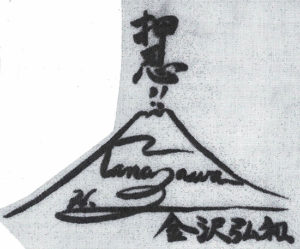 押忍!!
Kanazawa
金沢弘和